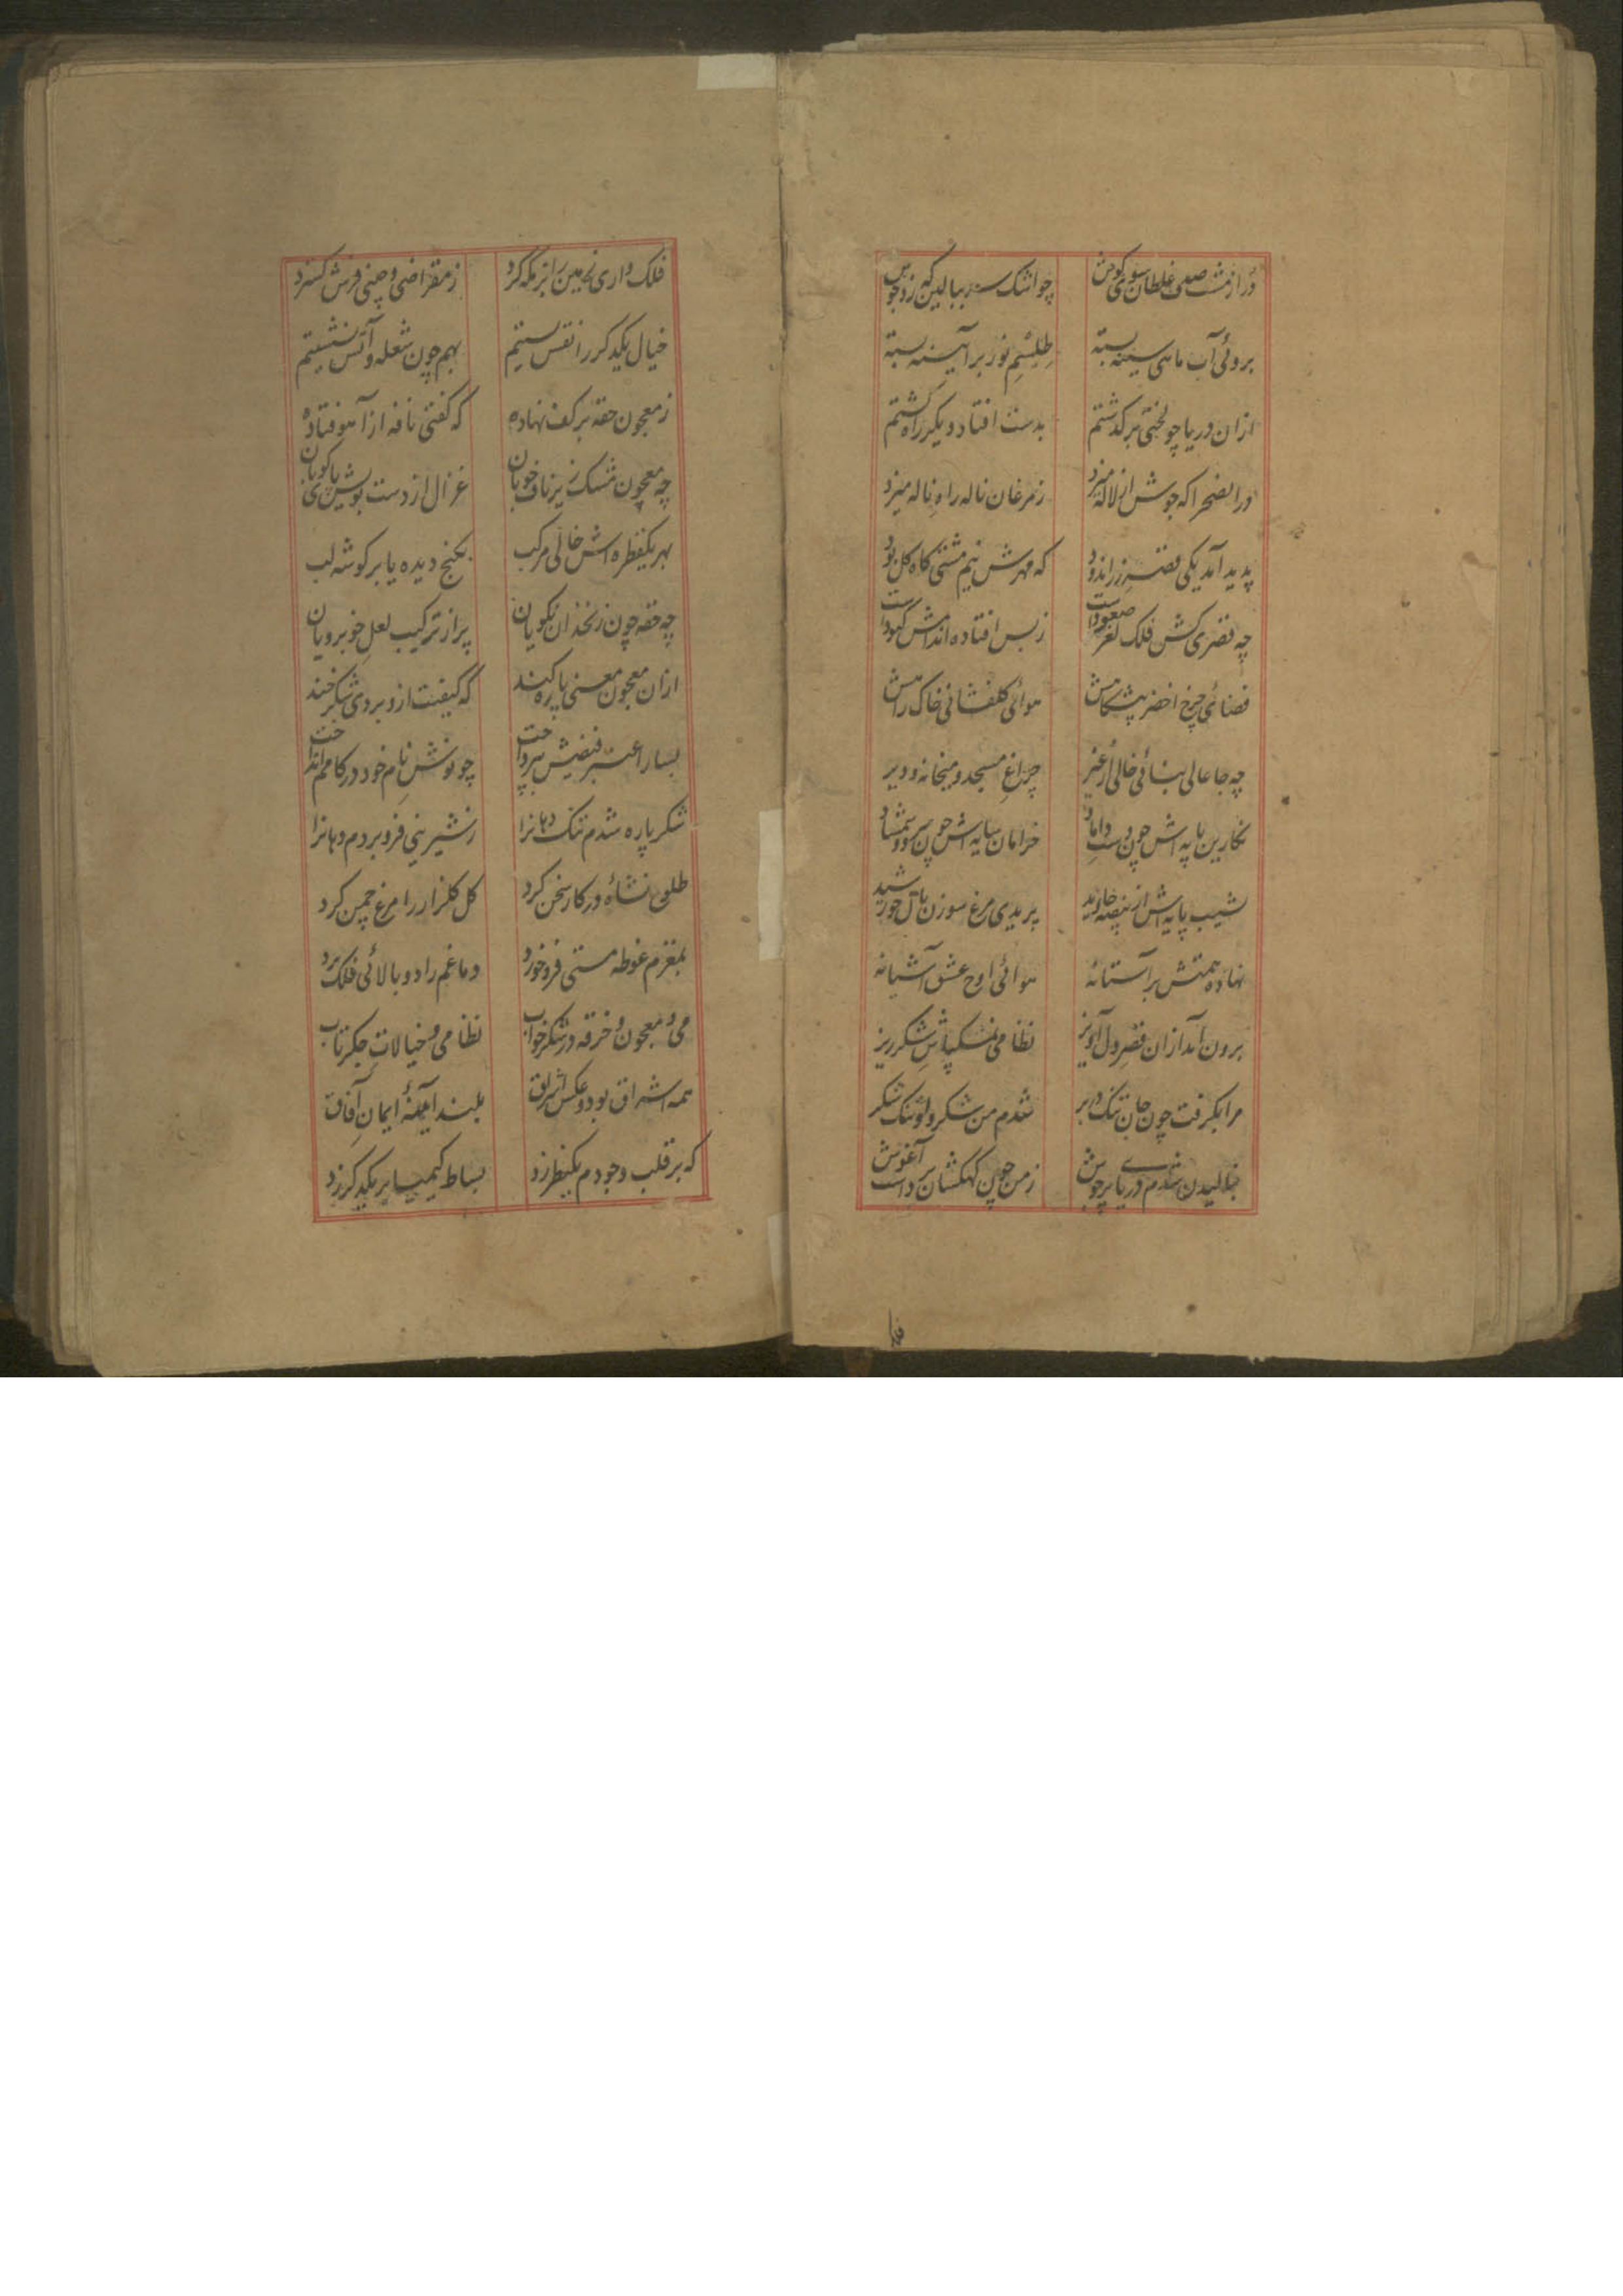 در از مشت صدف غلطان سوی گوش چو اشک سر ببالین گهر زد جوش
بروئی آب ماهی سینه بسته طلسم نور بر آئینه بسته
ازان دریا چو لختی برگذشتم بدست افتاد و یکر راه گشتم
دران صحرا که جوش از لاله میزد ز مرغان ناله راه ناله میزد
پدید آمد یکی قصر زراندود که مهرش نیم مشتی کاه گل بود
چه قصری کش فلک صعود است ز بس افتاده اندامش کبود است
فضائی چرخ اخضر پیشگاهش هوائی گلفشانی خاک راهش
چه جا عالی بنائی خالی از غیر چراغ مسجد و میخانه و دیر
نگارین پایه اش چون دست داماد خرامان سایه اش چون سرو و شمشاد
نشیب پایه اش از بیضه جاوید پریدی مرغ سوزن بال خورشید
نهاده همتش بر آستانه هوائی اوج عشق آشیانه
برون آمد ازان قصر دل آویز نظامی مشکپاش شکر ریز
مرا بگرفت چون جان تنگ در بر شدم من شکر و او تنگ شکر
ببالیدن شدم دریای پرجوش ز من چون کهکشان برداشت آغوش
فلک واری زمین را پر مه کرد ز مقراضی و چینی فرش گسترد
خیال یکدگر را نقش بستیم بهم چون شعله و آتش نشستیم
ز معجون حقه بر کف نهاده که گفتی نافه از آهو فتاده
چه معجون مشک زیر ناف خوبان غزال از دست بویش پای کوبان
بهر یکقطره اش خالی مرکب بکنج دیده یا بر گوشه لب
چه حقه چون زنخدان نکویان پر از ترکیب لعل خوبرویان
ازان معجون معنی پاره کند که کیفیت ازو بردی شکرخند
بسا را عنبر فیضش بپرداخت چو نوشش نام خود در کامم انداخت
شکر پاره شدم تنگ دهانرا ز شیرینی فرو بردم دهانرا
طلوع نشاه در کار سخن کرد گل گلزار را مرغ چمن کرد
بمغزم غوطه مستی فرو خورد دماغم را دو بالائی فلک برد
می و معجون و خرقه در شکر خواب نظامی و خیالات جگرتاب
همه اشراق بود و عکس اشراق بلند آئینهٔ ایمان آفاق
که بر قلب وجودم یکنظر زد بساط کیمیا بر یکدگر زد